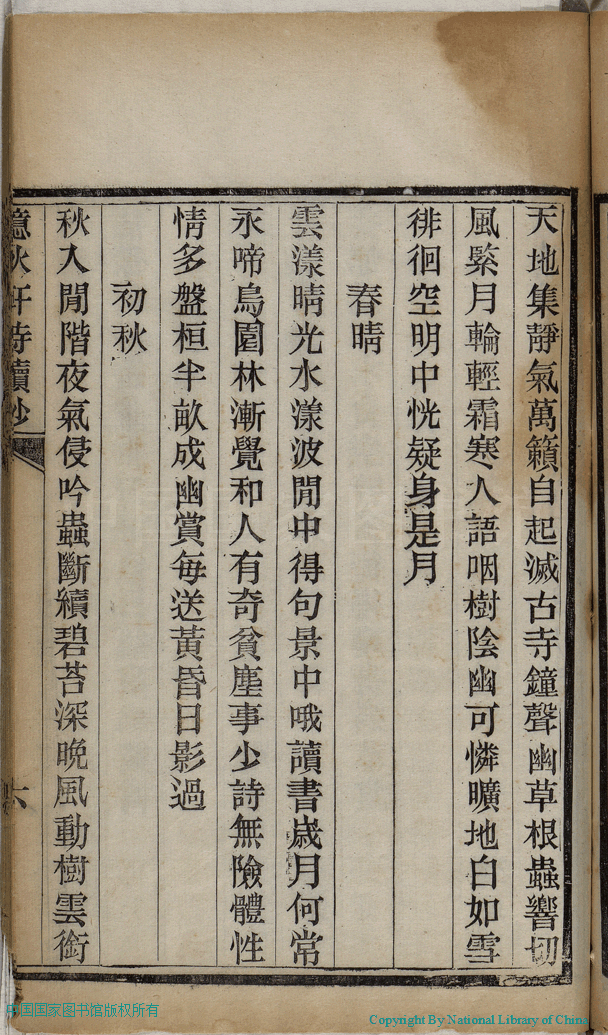 天地集靜氣萬籟自起滅古寺鐘聲幽草根蟲響切
風緊月輪輕霜寒人語咽樹陰幽可憐曠地白如雪
徘徊空明中恍疑身是月
春晴
雲漾晴光水漾波閒中得句景中哦讀書歲月何常
永啼鳥園林漸覺和人有奇貧塵事少詩無險體性
情多盤桓半畝成幽賞每送黃昏日影過
初秋
秋入閒階夜氣侵吟蟲斷續碧苔深晚風動樹雲銜
憶秋軒詩續抄
六
中国国家图书馆版权所有
Copyright By National Library of China